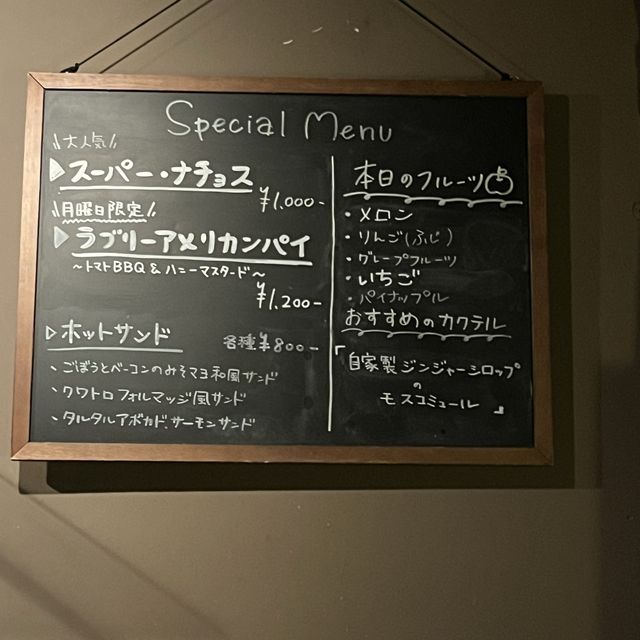 Special Menu
\\大人気//
▷スーパー・ナチョス
¥1,000-
\\月曜日限定//
▷ラブリーアメリカンパイ
〜トマトBBQ & ハニーマスタード〜
¥1,200-
▷ホットサンド 各種¥800-
、ごぼうとベーコンのみそマヨ和風サンド
、クワトロフォルマッジ風サンド
、タルタルアボカド、サーモンサンド
本日のフルーツ
・メロン
・りんご(ふじ)
・グレープフルーツ
・いちご
・パイナップル
おすすめのカクテル
「自家製ジンジャーシロップ
の
モスコミュール」